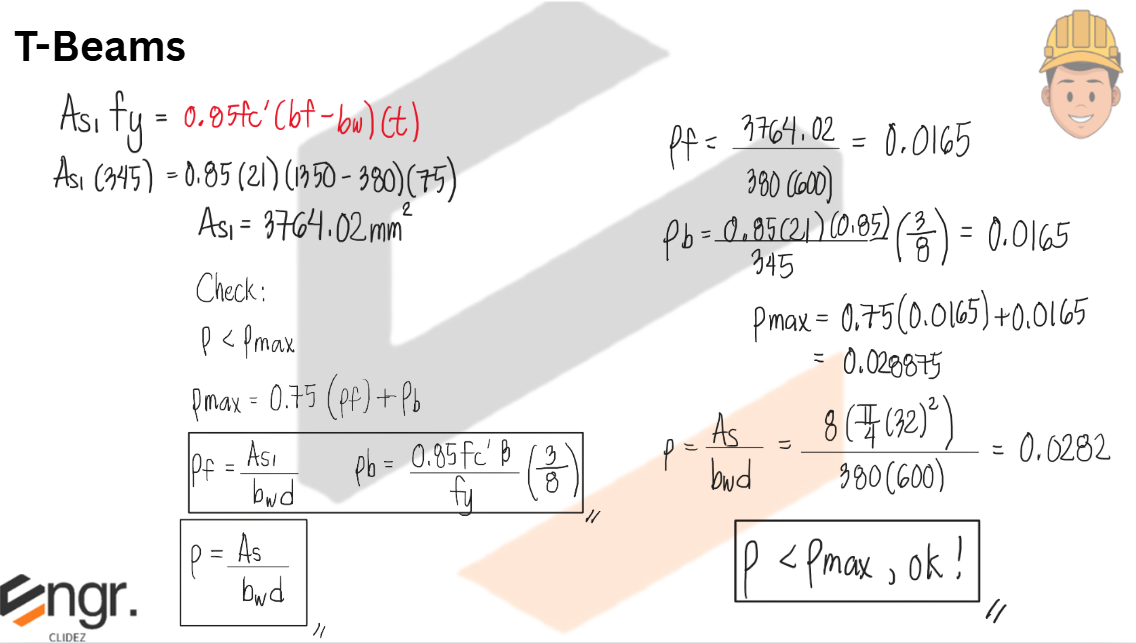 T-Beams
As₁ fy = 0.85fc'(bf-bw)(t)
As₁ (345) = 0.85(21)(1350-380)(75)
As₁ = 3764.02mm²
Check:
ρ < ρmax
ρmax = 0.75 (ρf)+ρb
ρf = As₁/bwd ρb = 0.85fc'β/fy (3/8)
ρ = As/bwd
ρf = 3764.02/380(600) = 0.0165
ρb = 0.85(21)(0.85)/345 (3/8) = 0.0165
ρmax = 0.75(0.0165)+0.0165
= 0.028875
ρ = As/bwd = 8(π/4(32)²)/380(600) = 0.0282
ρ < ρmax, ok!
Engr.
CLIDEZ